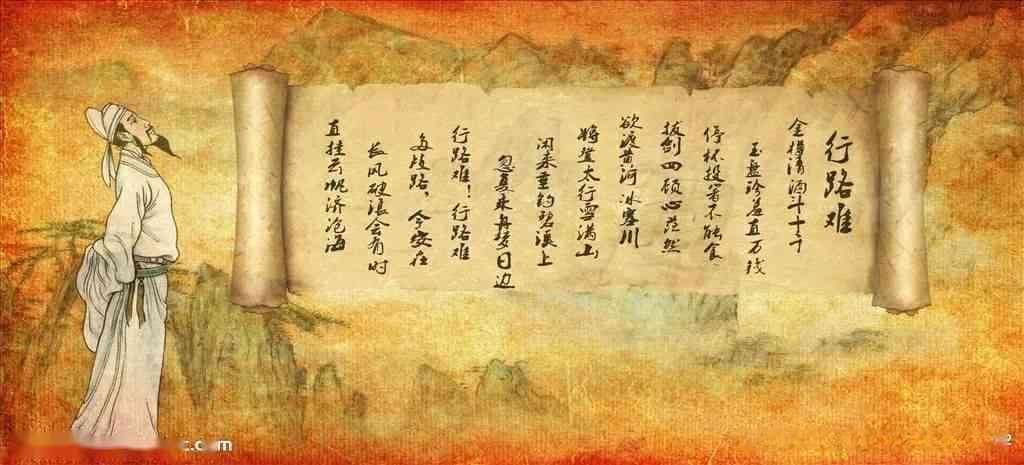 行路难
金樽清酒斗十千
玉盘珍羞直万钱
停杯投箸不能食
拔剑四顾心茫然
欲渡黄河冰塞川
将登太行雪满山
闲来垂钓碧溪上
忽复乘舟梦日边
行路难！行路难
多歧路，今安在
长风破浪会有时
直挂云帆济沧海
c.com
2